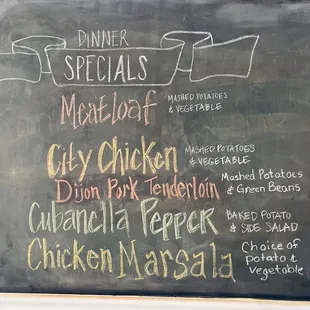 DINNER
SPECIALS
Meatloaf MASHED POTATOES
& VEGETABLE
City Chicken MASHED POTATOES
& VEGETABLE
Dijon Pork Tenderloin Mashed Potatoes
& Green Beans
Cubanella Pepper BAKED POTATO
& SIDE SALAD
Chicken Marsala Choice of
Potato &
Vegetable